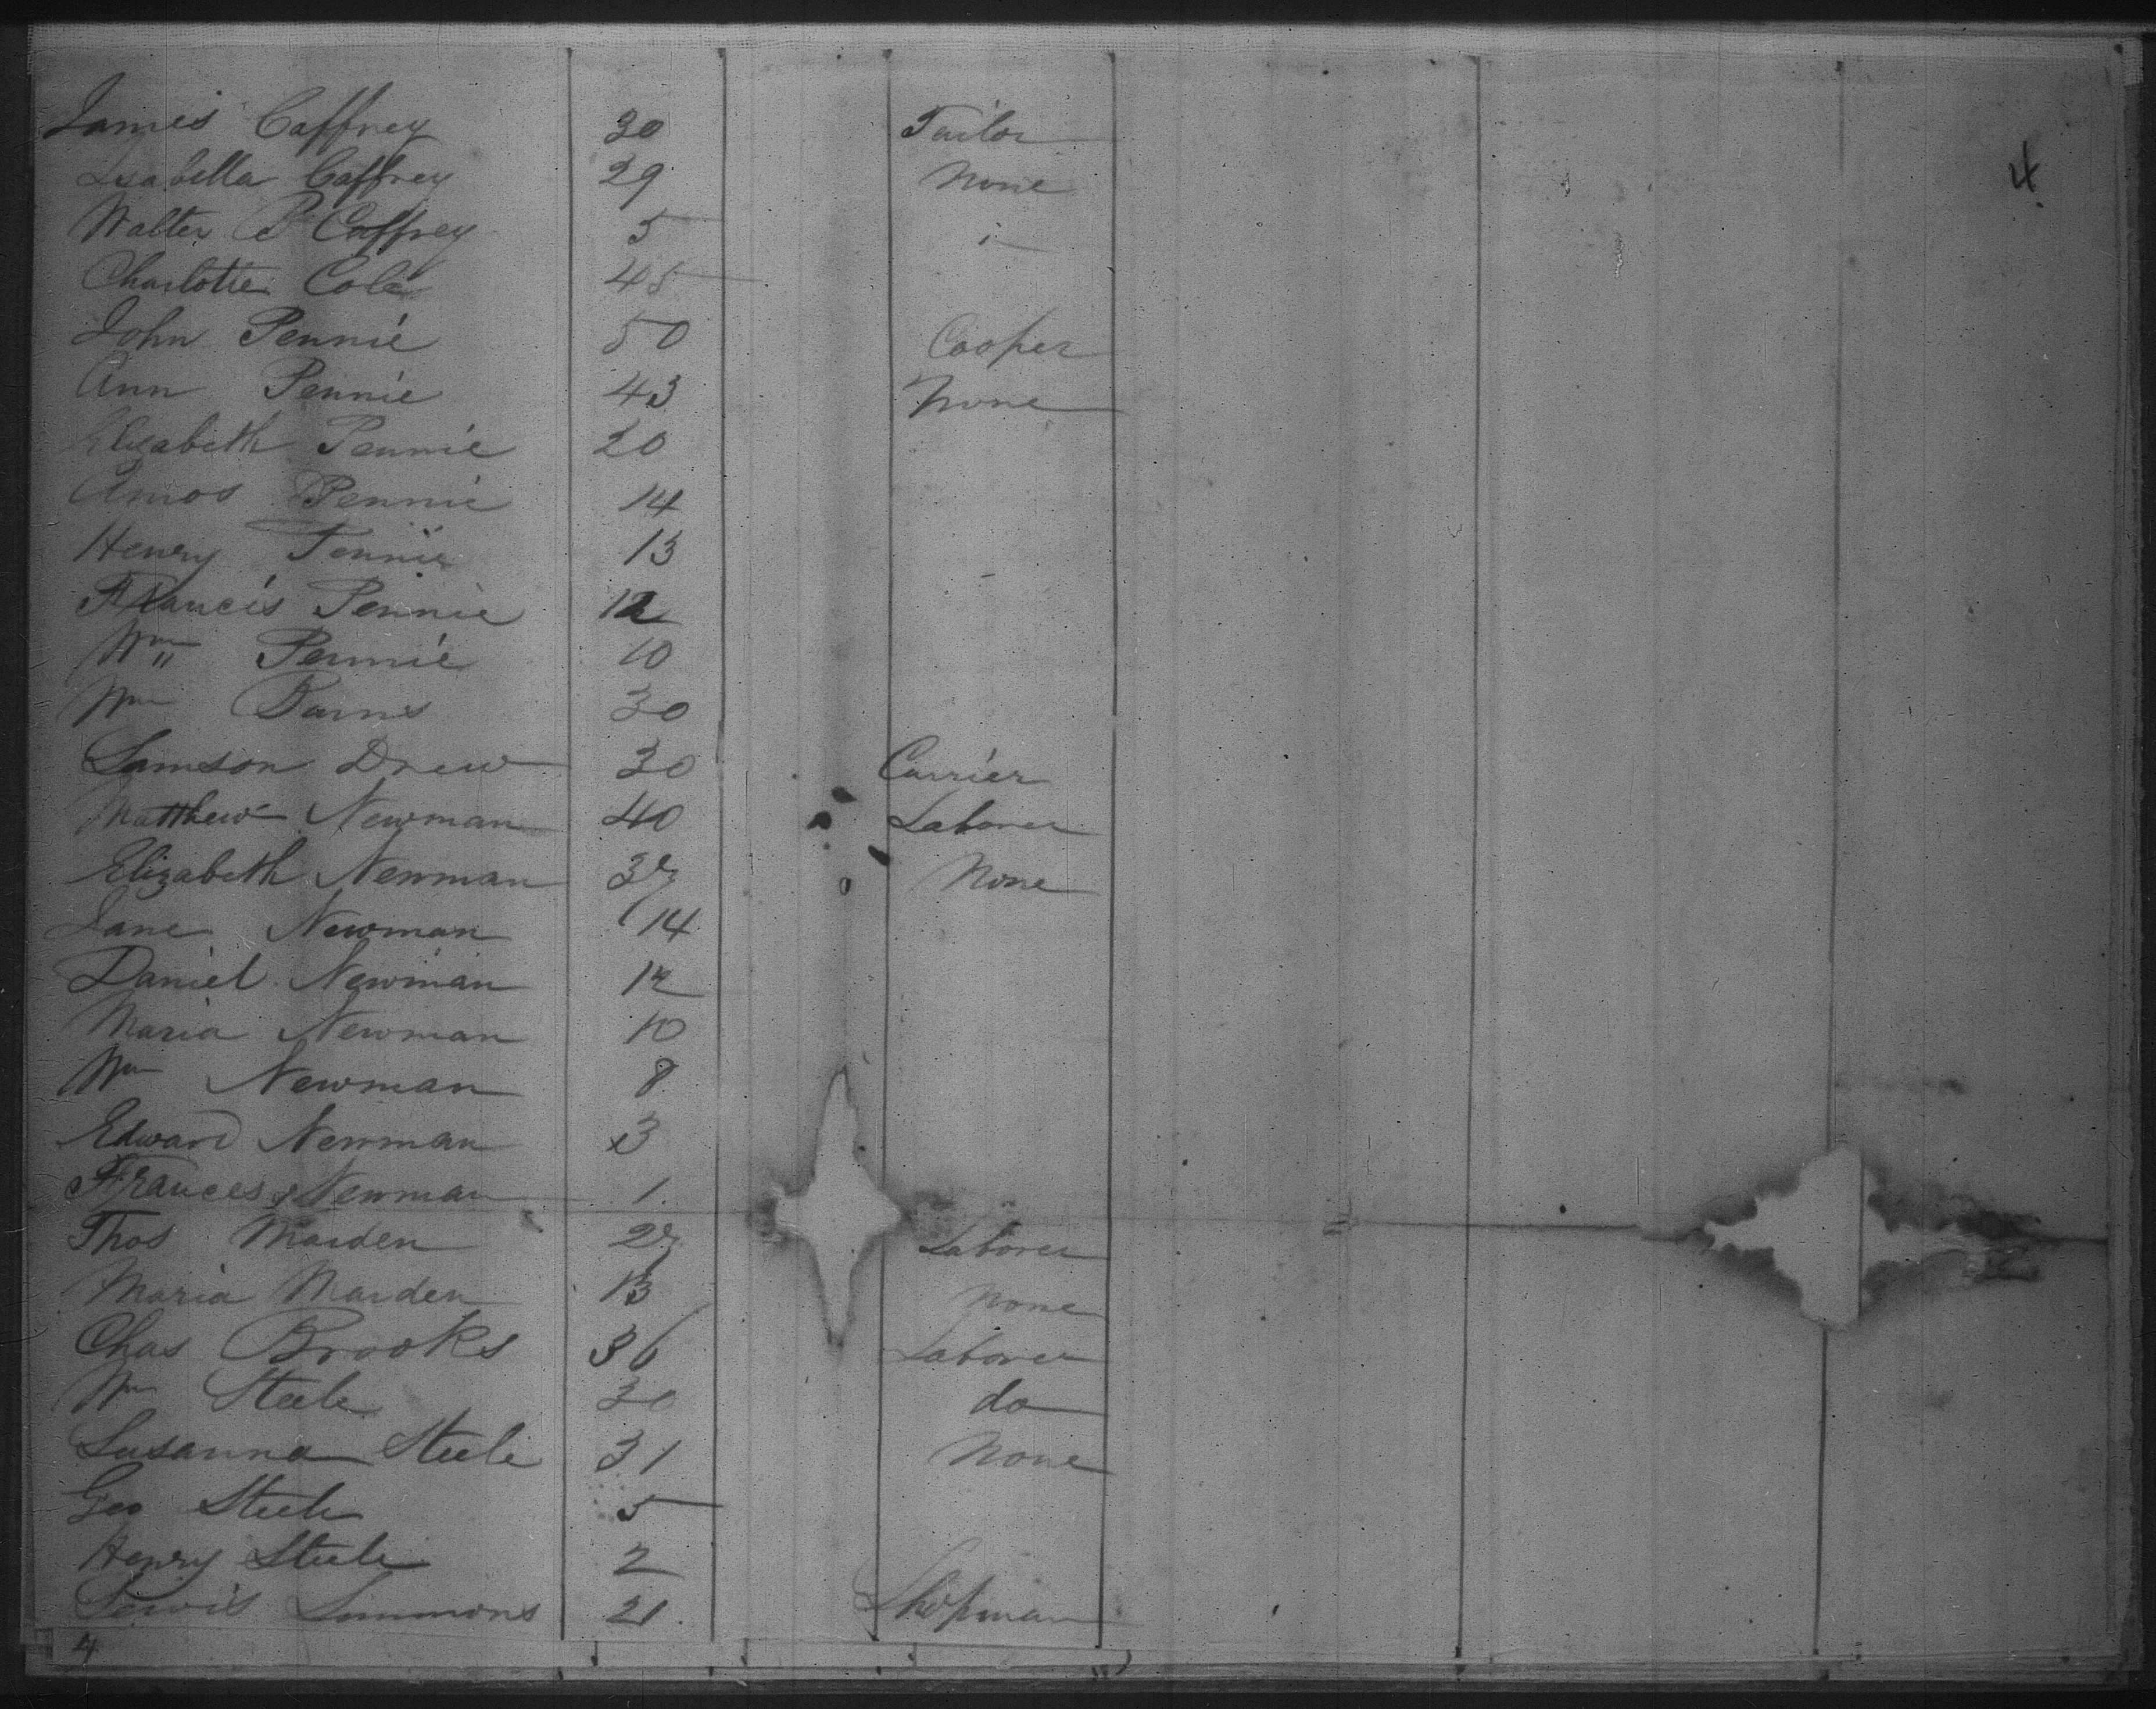 James Caffrey 30 Tailor
Isabella Caffrey 29 None
4
Walter P Caffrey 5
Charlotte Cole 45
John Pennie 50 Cooper
Ann Pennie 43 None
Elizabeth Pennie 20
Amos Pennie 14
Henry Pennie 13
Francis Pennie 12
Wm Pennie 10
Wm 30
Samson Drew 30 Currier
Matthew Newman 40 Laborer
Elizabeth Newman 37 None
Jane Newman 14
Daniel Newman 12
Maria Newman 10
Wm Newman 8
Edward Newman 3
Frances Newman 1
Thos Marden 27 Laborer
Maria Marden 13 None
Chas Brooks 36 Laborer
Wm Steele 30 do
Susanna Steele 31 None
Geo Steele 5
Henry Steele 2
Lewis Simmons 21 Shopman
4